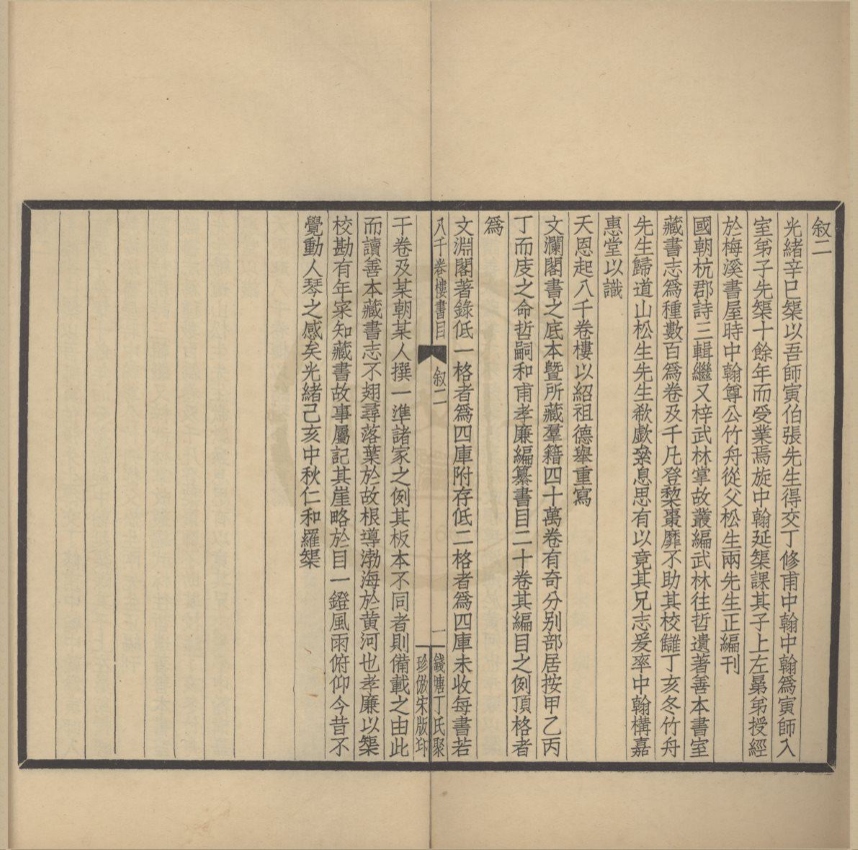 叙二
光緒辛巳榘以吾師寅伯張先生得交丁修甫中翰中翰爲寅師入
室弟子先榘十餘年而受業焉旋中翰延榘課其子上左㬎弟授經
於梅溪書屋時中翰尊公竹舟從父松生兩先生正編刊
國朝杭郡詩三輯繼又梓武林掌故叢編武林往哲遺著善本書室
藏書志爲種數百爲卷及千凡登棃棗靡不助其校讎丁亥冬竹舟
先生歸道山松生先生欷歔絫息思有以竟其兄志爰率中翰構嘉
惠堂以識
天恩起八千卷樓以紹祖德舉重寫
文瀾閣書之底本暨所藏羣籍四十萬卷有奇分别部居按甲乙丙
丁而庋之命哲嗣和甫孝廉編纂書目二十卷其編目之例頂格者
爲
文淵閣著錄低一格者爲四庫附存低二格者爲四庫未收每書若
八千卷樓書目
叙二
一
錢塘丁氏聚
珍倣宋版印
干卷及某朝某人撰一準諸家之例其板本不同者則備載之由此
而讀善本藏書志不翅尋落葉於故根導渤海於黄河也孝廉以榘
校勘有年寀知藏書故事屬記其崖略於目一鐙風雨俯仰今昔不
覺動人琴之感矣光緒己亥中秋仁和羅榘